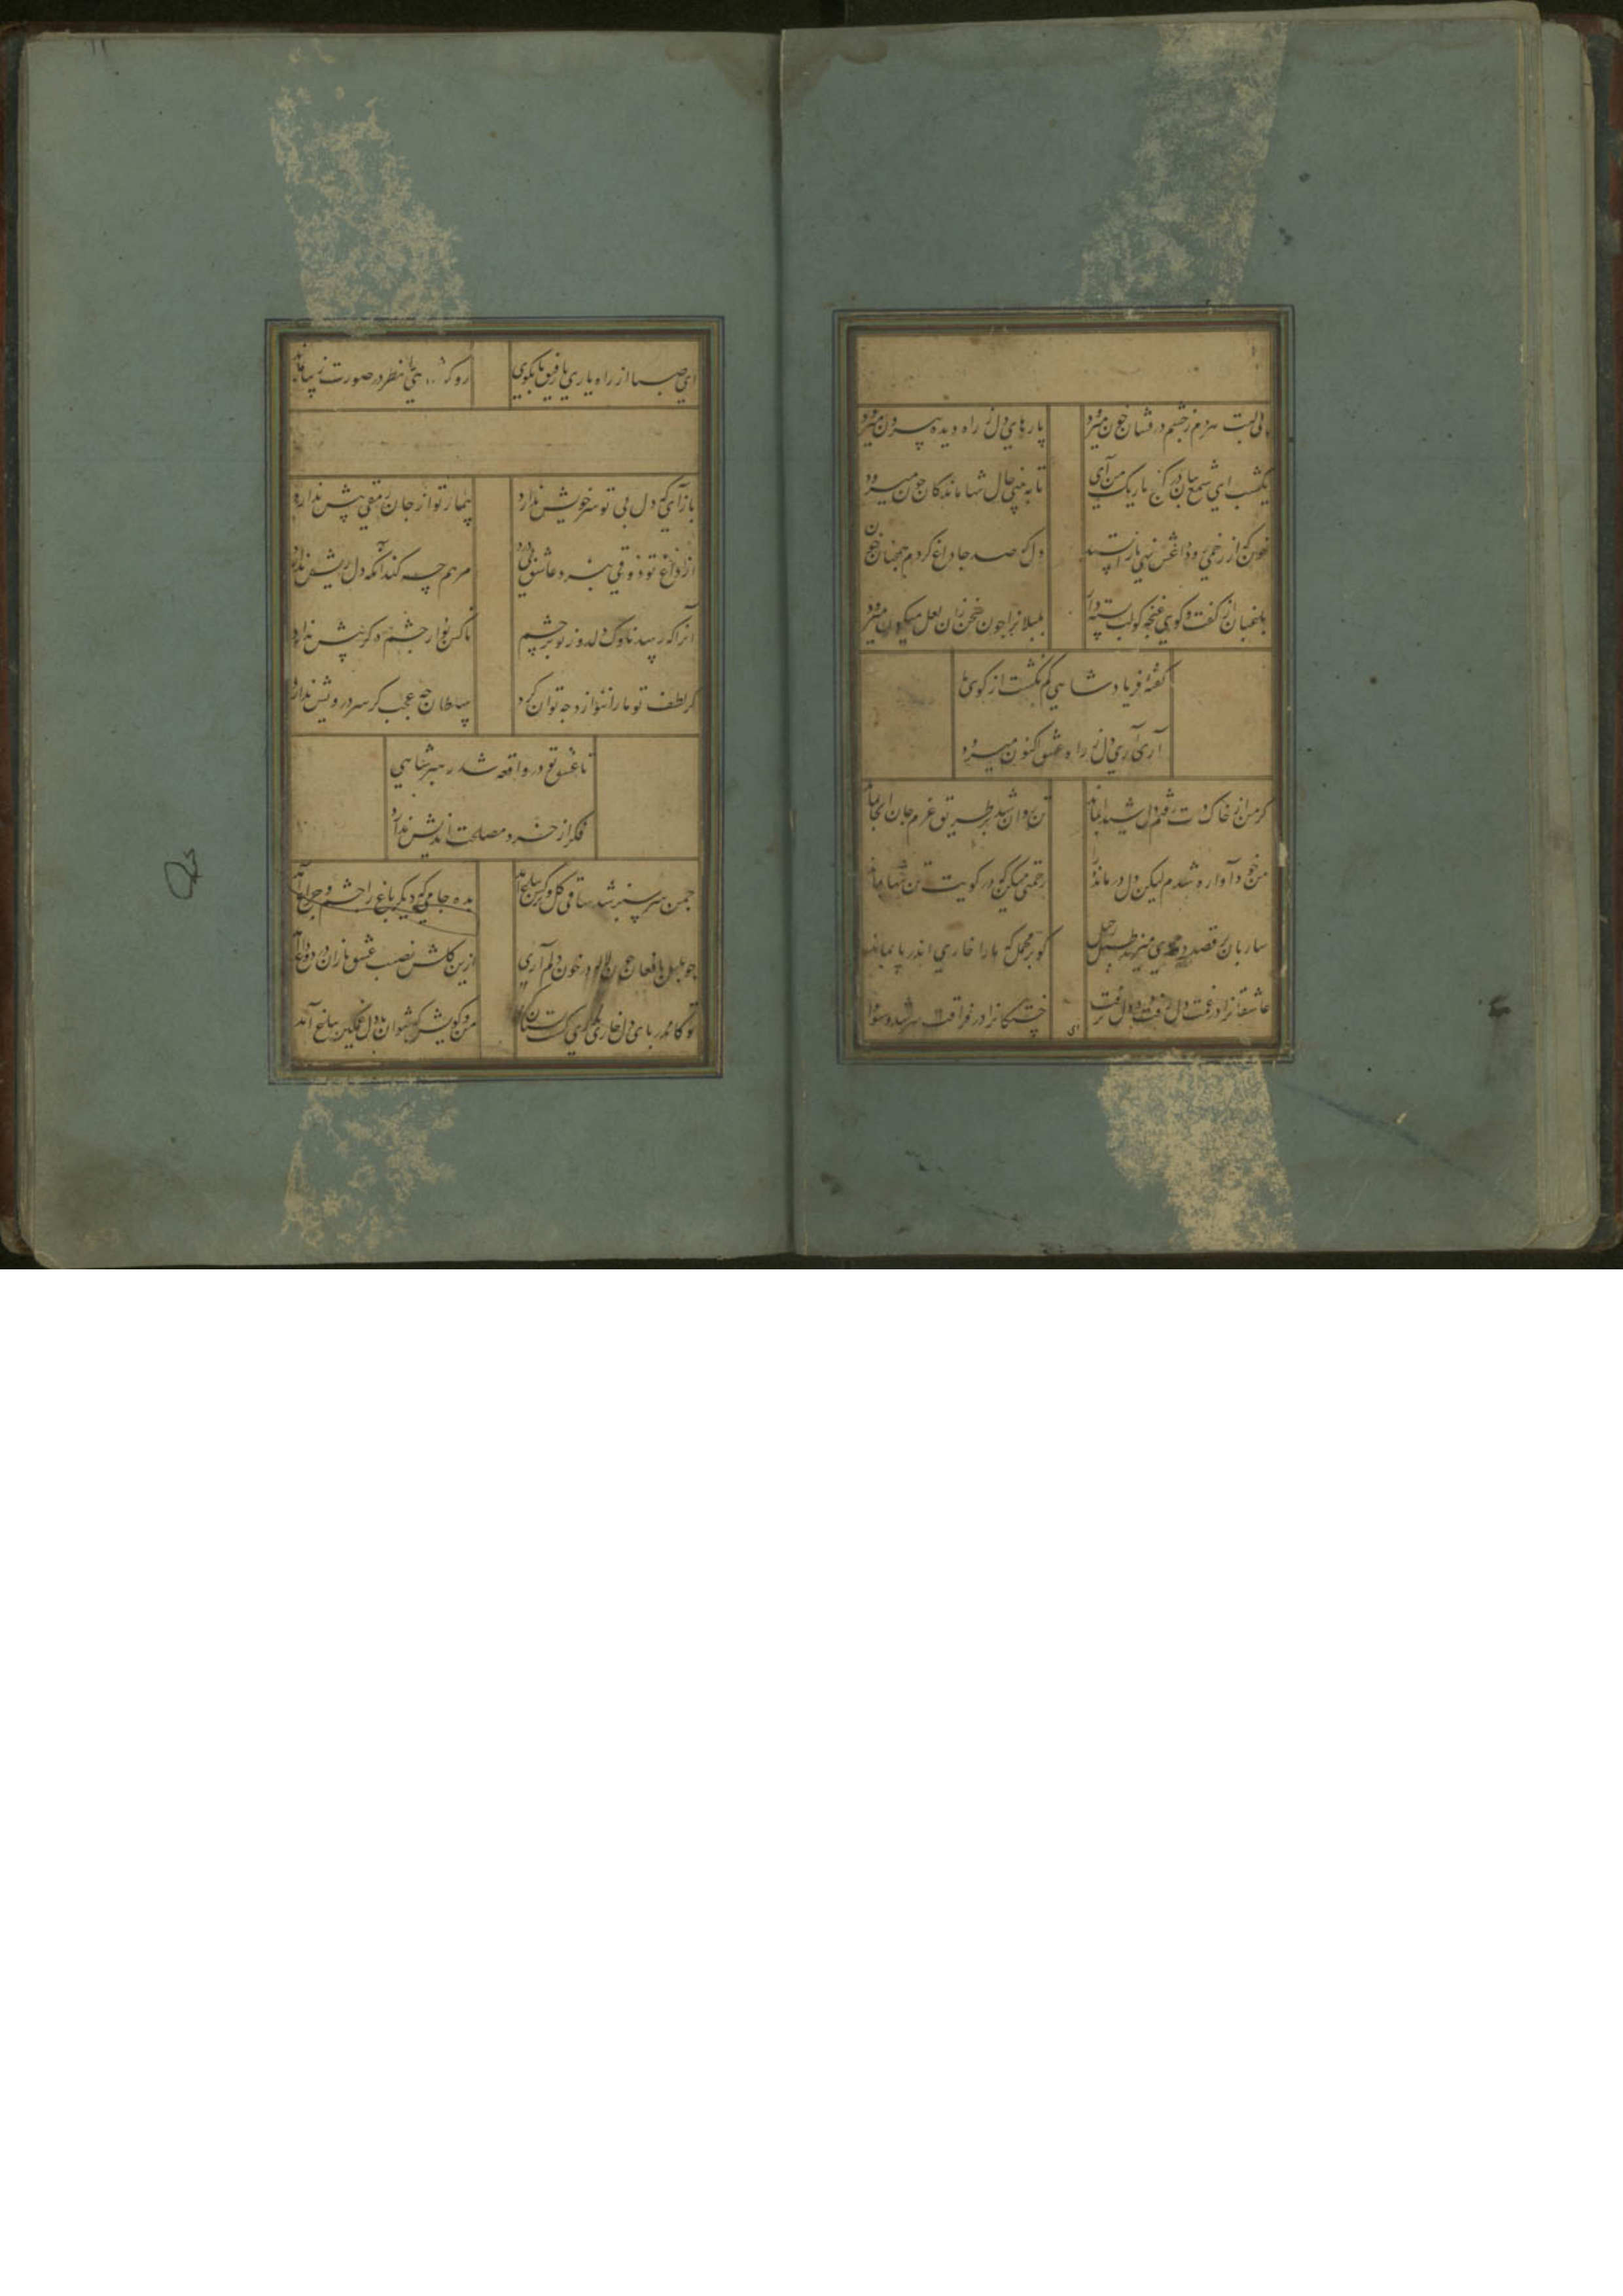 بی لبت هر دم ز چشم درفشان خون میرود
پارهای دل ز راه دیده بیرون میرود
یکشب ای شمع بتان در کنج تاریک من آی
تا به بینی حال تنها ماندکان چون میرود
خون که از زخمی رود داغش نهی باز ایستد
دل که صد جا داغ کردم همچنان خون
بلبلان از کفت و کوی غنچه کو لب بسته دار
بلبلانرا چون سخن زان لعل میکون میرود
کفته فریاد شاهی کم نکشت از کوی ما
آری آری دل ز راه عشق اکنون میرود
کر من از خاک درت رفتم دل شیدا بماند
تن روان شد بر طریق عزم جان آنجا بماند
من خود آواره شدم لیکن دل درمانده را
رحمتی میکن که در کویت تن تنها بماند
ساربان کو قصد دوری میزند طبل رحیل
کو بر محمل که ما را خاری اندر پا بماند
عاشقانرا درغمت دل رفت و درد دل نرفت
خستکانرا در فراقت سر شد و سودا
ای
ای صبا از راه یاری با رفیق ما بکوی
رو که شاهی را نظر در صورت زیبا بماند
بازآی که دل بی تو سر خویش ندارد
بیمار تو از جان رمقی بیش ندارد
از داغ تو ذوقی نبرد عاشق بی درد
مرهم چه کند آنکه دل ریش ندارد
آنرا که رسید ناوک دلدوز تو بر چشم
ناکس بود ار چشم دکر پیش ندارد
کر لطف تو ما را ننوازد چه توان کرد
سلطان چه عجب کر سر درویش ندارد
تا عشق تو در واقعه شد رهبر شاهی
فکر از خرد مصلحت اندیش ندارد
چمن سرسبز شد ساقی کل و نرکس بباغ آمد
بده جامی که دیکر باغ را چشم و چراغ آمد
چو بلبل با فغان چون لاله در خون دلم آری
ازین کلشن نصیب عشق بازان درد و داغ آمد